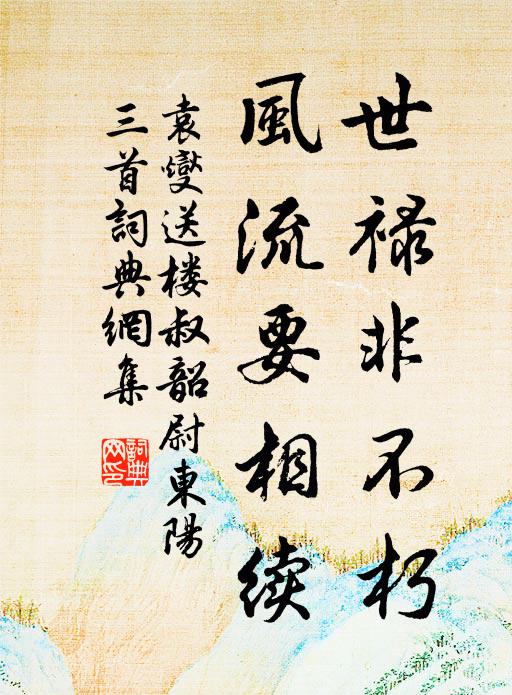 世禄非不朽
風流要相续
袁燮送楼叔韶尉東陽
三首詞典網集
詞典
网印